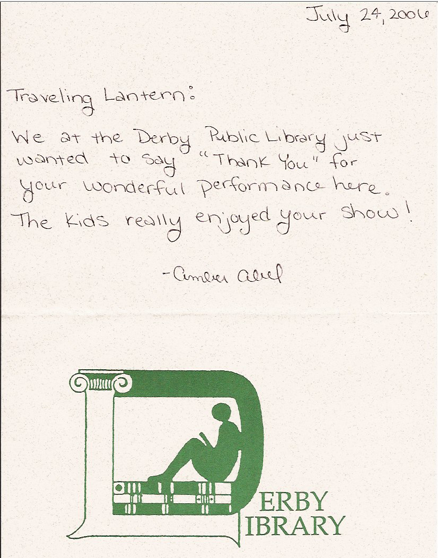 July 24, 2006
Traveling Lantern:
We at the Derby Public Library just
wanted to say "Thank You" for
your wonderful performance here.
The kids really enjoyed your show!
-Amber Abel
DERBY
LIBRARY